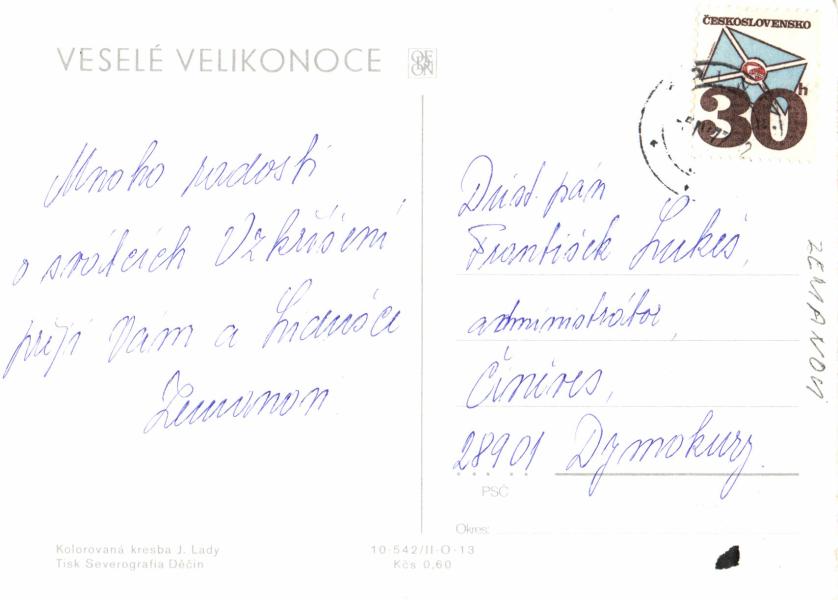 VESELÉ VELIKONOCE
ODEON
ČESKOSLOVENSKO
h
30
Mnoho radosti
o svátcích Vzkříšení
přejí Vám a Lidušce
Zemanovi
Důst. pán
František Lukeš,
administrátor,
Činěves,
28901 Dymokury.
PSČ
Okres:
ZEMANOVI
Kolorovaná kresba J. Lady
Tisk Severografia Děčín
10-542/II-O-13
Kčs 0,60